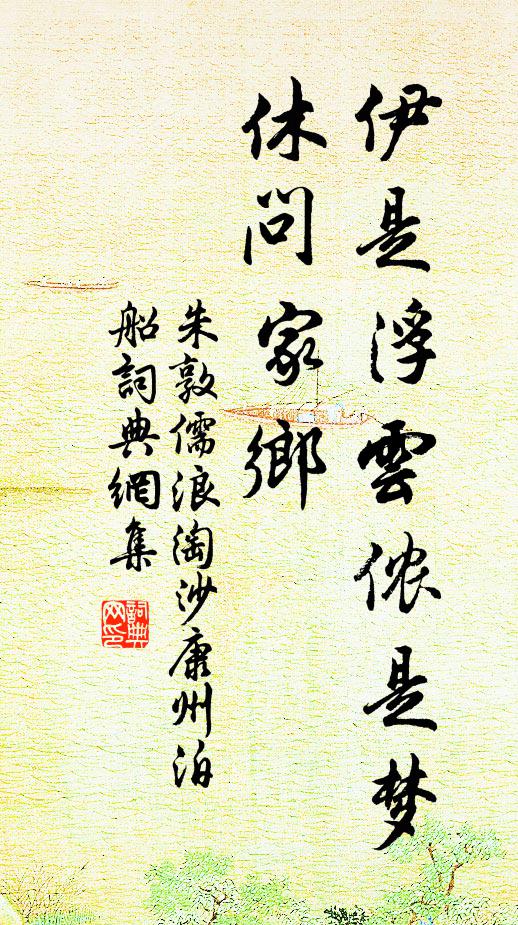 伊是浮雲侬是梦
休問家鄉
朱敦儒浪淘沙康州泊
船詞典網集
詞典网印